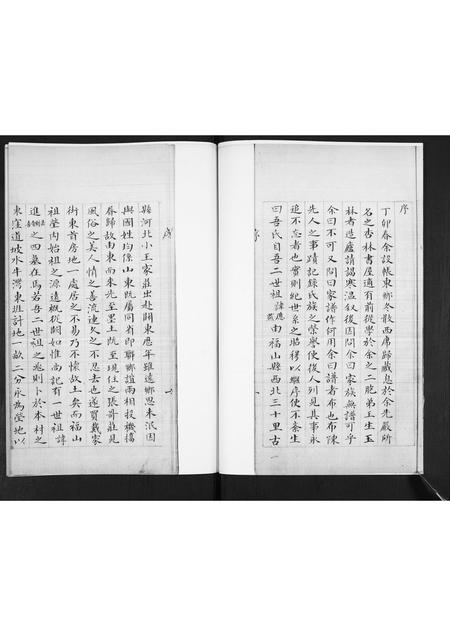 序
丁卯春余設帳東鄉冬散西席歸藏息於余先嚴所
名之杏林書屋適有前從學於余之二胞弟玉生玉
林者造廬請謁寒温叙後因問余曰家族無譜可乎
余曰不可又問曰家譜作何用余曰譜者布也布陳
先人之事蹟記綠氏族之榮譽使後人列見其事永
追不忘者也實則紀世系之昭穆以繼序使不紊生
曰吾氏自吾二世祖諱應南福山縣西北三十里古
序
縣河北小王家莊出赴關東應年雖遠鄉思未泯因
與國姓均係山東既屬同省即聯鄉誼兩相投機攜
眷歸故由東而來先至墨土阮至現住之張哥莊見
風俗之美人情之善流連久之不忍去也遂買戴家
街東首房地一處居之不易乃不懷故土矣而福山
祖塋內始祖之源遠概從闕如惟尚記有一世祖諱
進之四墓在焉若吾二世祖之兆則卜於本村之
東窪道坡水牛灣東班計地一畝二分永為塋地以